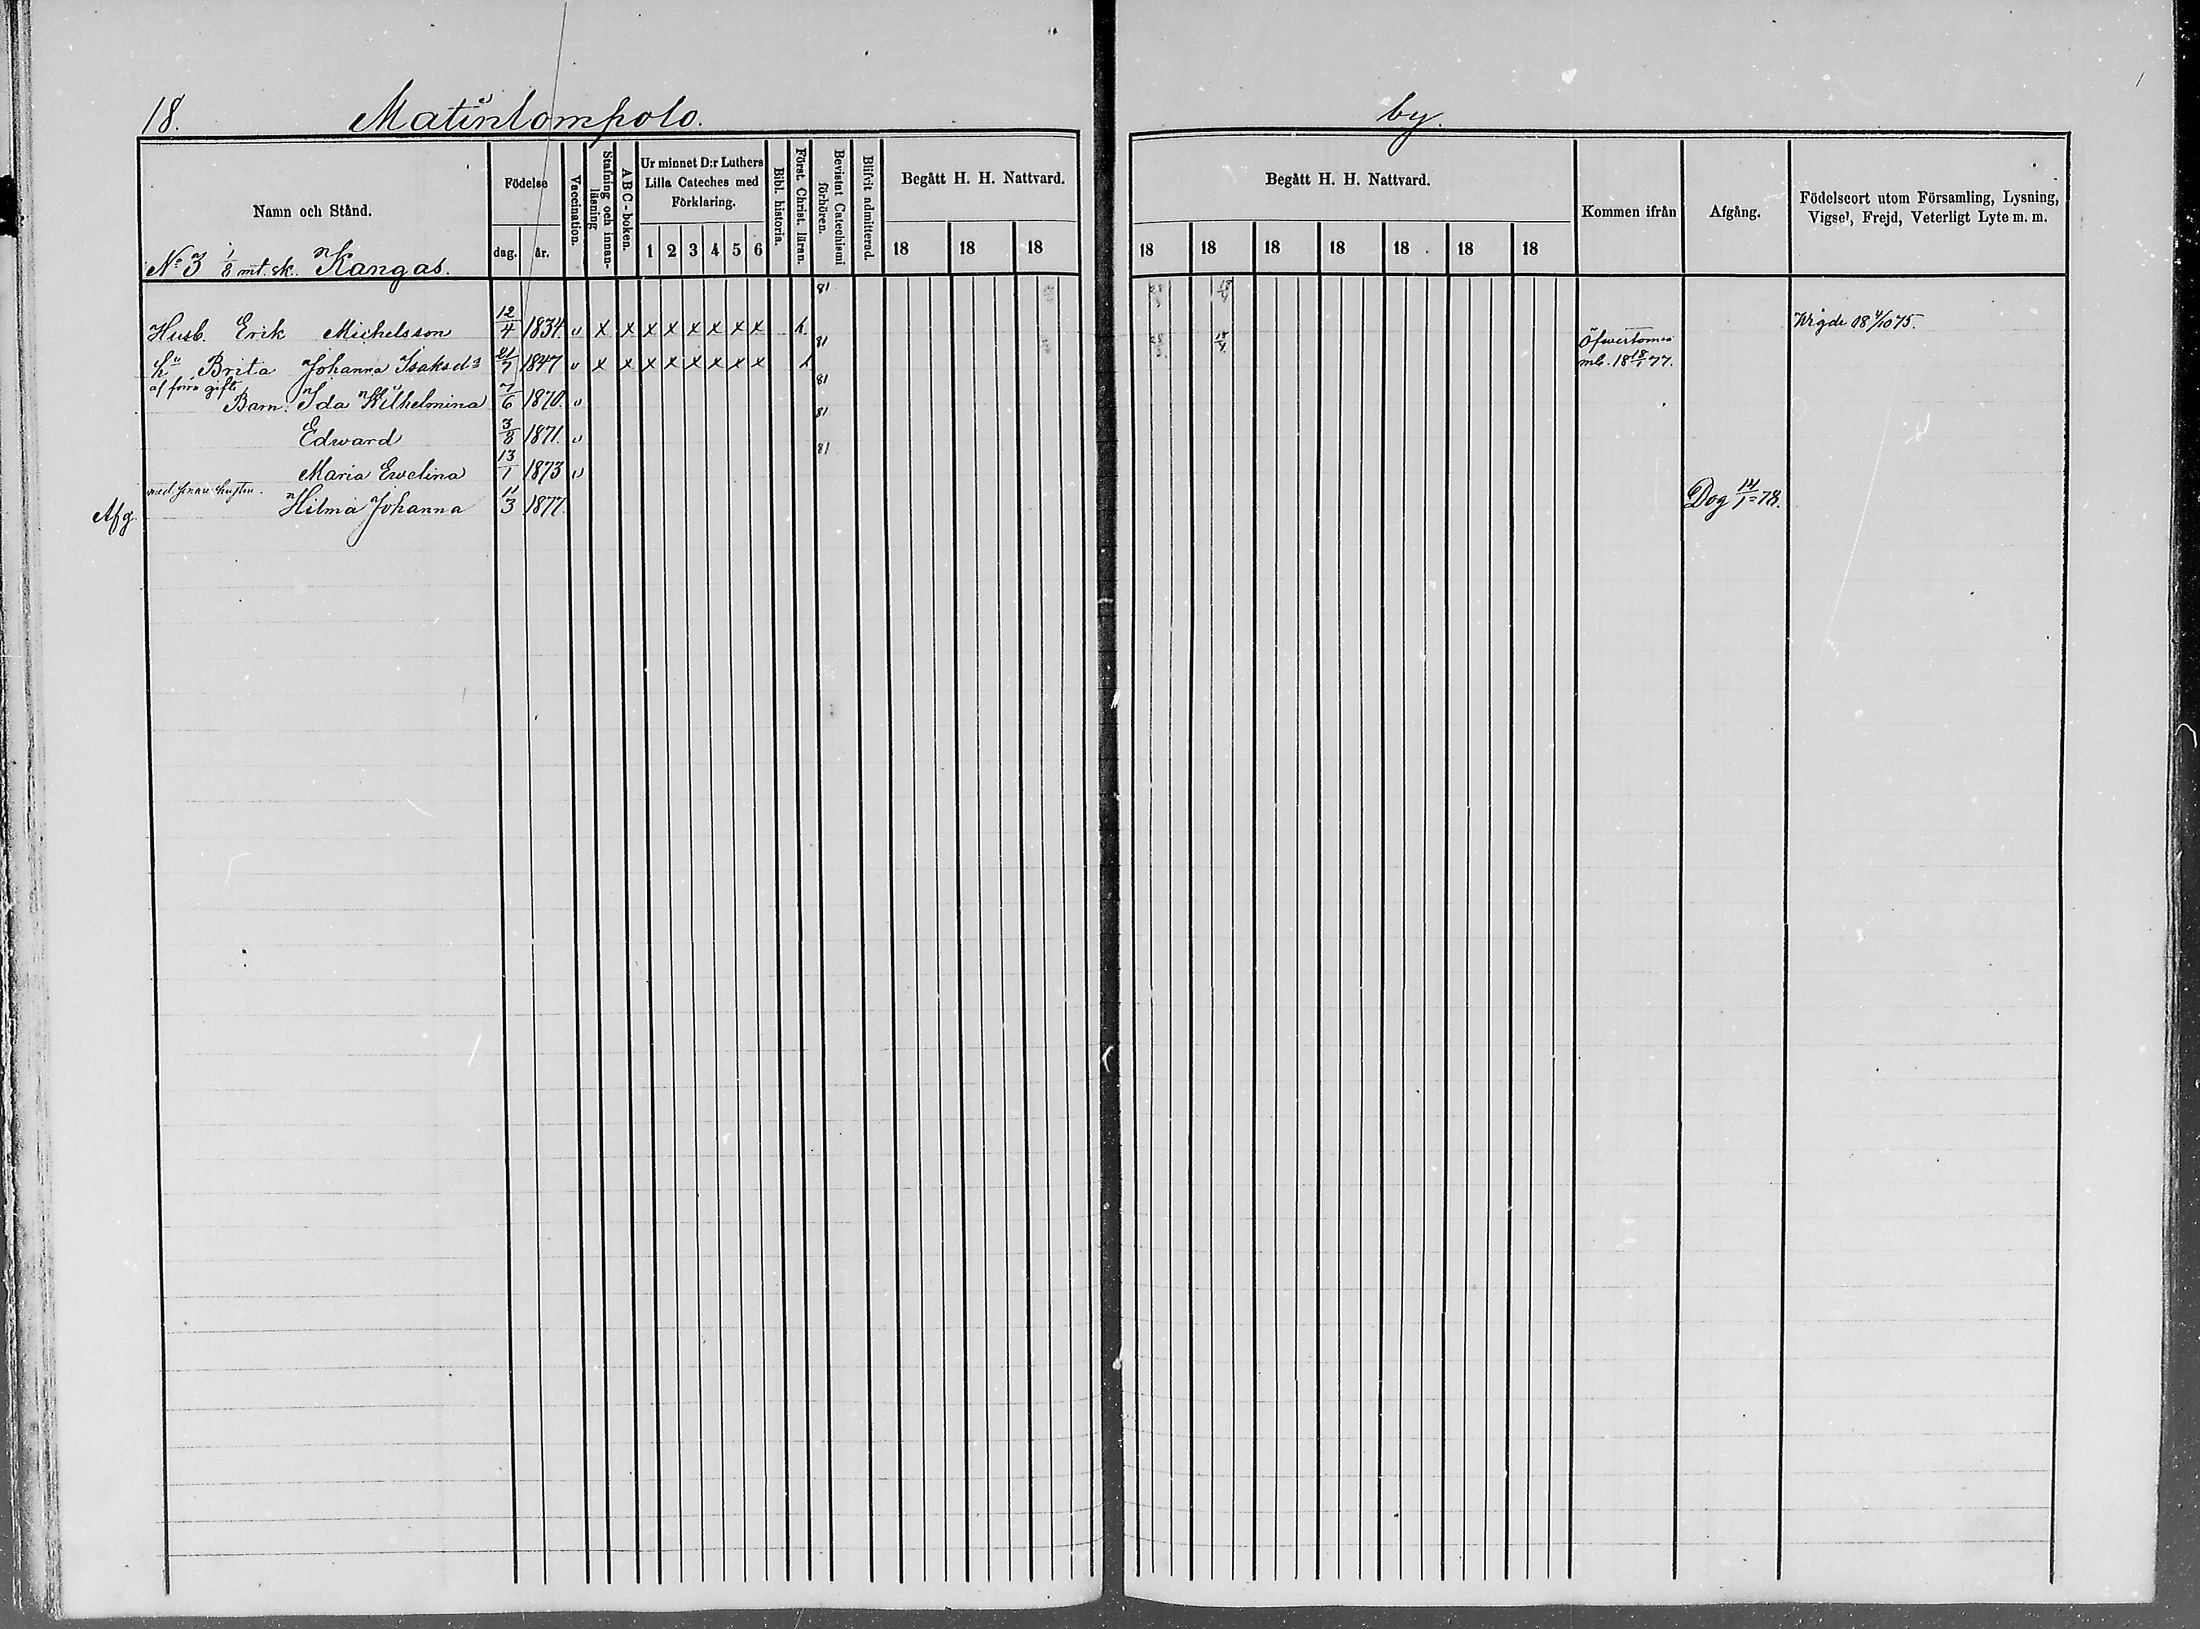 18. Matinlompolo. by.
Namn och Stånd.
Födelse
dag. år.
Vaccination.
Stafning och innanläsning
A B C-boken.
Ur minnet D:r Luthers Lilla Cateches med Förklaring.
1 2 3 4 5 6
Bibl. historia.
Först. Christ. läran.
Bevistat Catechismi förhören.
Blifvit admitterad.
Begått H. H. Nattvard.
18 18 18
Begått H. H. Nattvard.
18 18 18 18 18 18 18
Kommen ifrån
Afgång.
Födelseort utom Församling, Lysning, Vigsel, Frejd, Veterligt Lyte m. m.
No 3 1/8 mt. sk. Kangas.
Husb. Erik Michelsson 12/4 1834. v x x x x x x x x h. 81 Wigde 18 4/10 75.
hu Brita Johanna Isaksdr 21/7 1847 v x x x x x x x x h 81 Öfvertorneå mb. 18 18/1 77.
af förra gifte
Barn: Ida Wilhelmina 7/6 1870. v 81
Edward 3/8 1871. v 81
Maria Ewelina 13/1 1873 v 81
Afg. Hilma Johanna 11/3 1877. Dog 14/1 = 78.